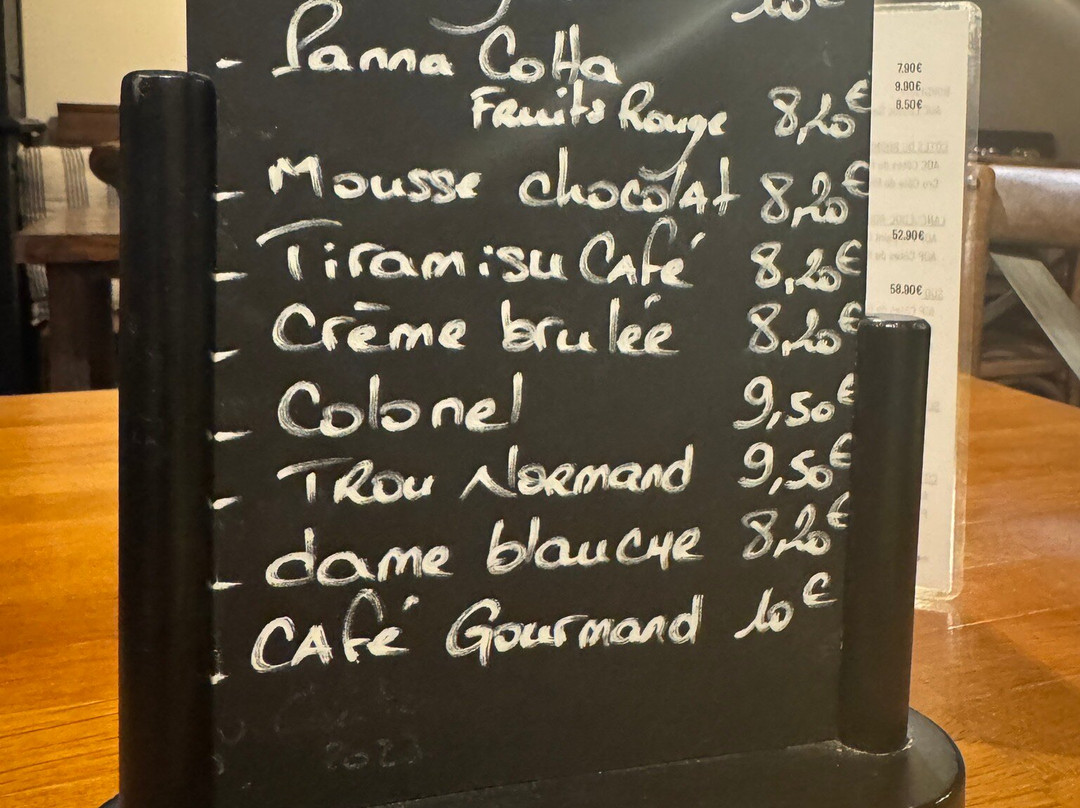 10€
- Panna Cotta
Fruits Rouge 8,20€
- Mousse chocolat 8,20€
- Tiramisu Café 8,20€
- Crème brulée 8,20€
- Colonel 9,50€
- Trou Normand 9,50€
- dame blanche 8,20€
- Café Gourmand 10€
2022
7.90€
9.90€
8.50€
52.90€
58.90€